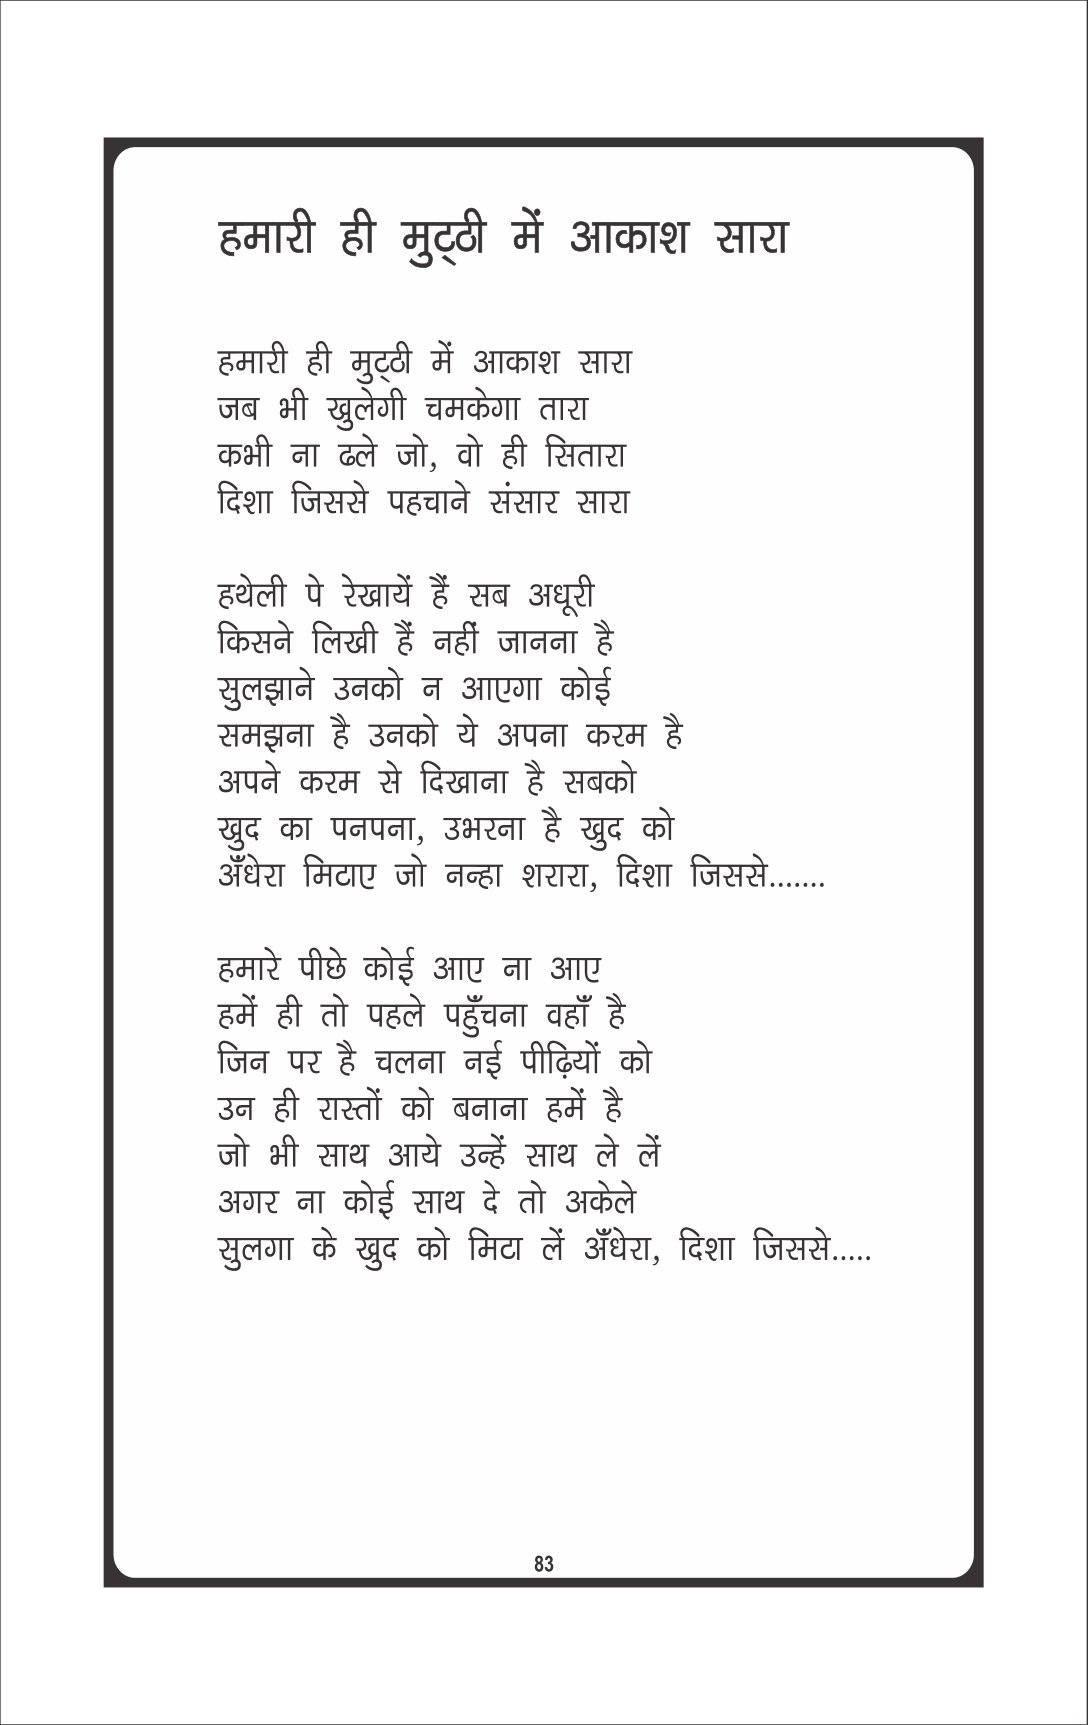 हमारी ही मुट्ठी में आकाश सारा
हमारी ही मुट्ठी में आकाश सारा
जब भी खुलेगी चमकेगा तारा
कभी ना ढले जो, वो ही सितारा
दिशा जिससे पहचाने संसार सारा
हथेली पे रेखायें हैं सब अधूरी
किसने लिखी हैं नहीं जानना है
सुलझाने उनको न आएगा कोई
समझना है उनको ये अपना करम है
अपने करम से दिखाना है सबको
खुद का पनपना, उभरना है खुद को
अँधेरा मिटाए जो नन्हा शरारा, दिशा जिससे.......
हमारे पीछे कोई आए ना आए
हमें ही तो पहले पहुँचना वहाँ है
जिन पर है चलना नई पीढ़ियों को
उन ही रास्तों को बनाना हमें है
जो भी साथ आये उन्हें साथ ले लें
अगर ना कोई साथ दे तो अकेले
सुलगा के खुद को मिटा लें अँधेरा, दिशा जिससे.....
83